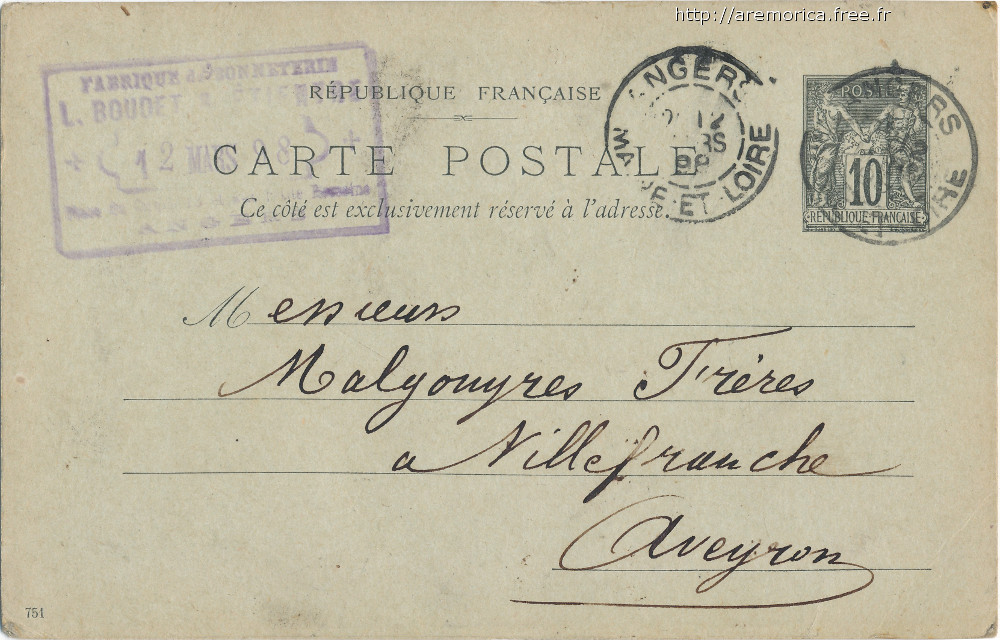 http://aremorica.free.fr
FABRIQUE de BONNETERIE
L. BOUDET
12 MARS 98
ANGERS
RÉPUBLIQUE FRANÇAISE
CARTE POSTALE
Ce côté est exclusivement réservé à l'adresse.
ANGERS
ET LOIRE
POSTES
10
RÉPUBLIQUE FRANÇAISE
Messieurs
Malgouyres Frères
a Villefranche
Aveyron
751